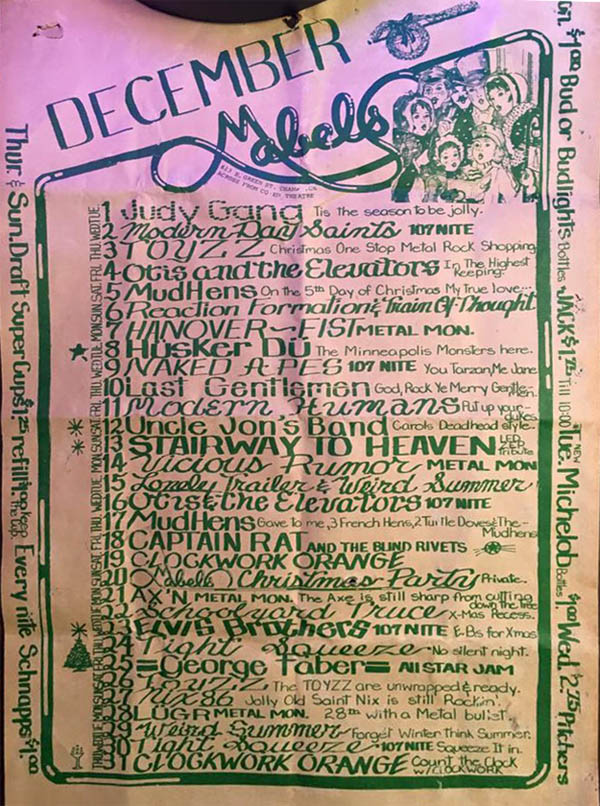 DECEMBER
Mabel's
113 E. GREEN ST. CHAMP.
ACROSS FROM CO-ED THEATRE
1 Judy Gang Tis the season to be jolly.
2 Modern Day Saints 107 NITE
3 TOYZZ Christmas One Stop Metal Rock Shopping
4 Otis and the Elevators In The Highest Keeping
5 MudHens On the 5th Day of Christmas My True love...
6 Reaction Formation & Train Of Thought
7 HANOVER-FIST METAL MON.
8 Hüsker Dü The Minneapolis Monsters here.
9 NAKED APES 107 NITE You Tarzan, Me Jane
10 Last Gentlemen God, Rock Ye Merry Gentlemen
11 Modern Humans Put up your dukes
12 Uncle Jon's Band Carols Deadhead style.
13 STAIRWAY TO HEAVEN LED ZEP Tribute
14 Vicious Rumor METAL MON
15 Lonely Trailer & Weird Summer
16 Otis & the Elevators 107 NITE
17 MudHens Gave to me, 3 French Hens, 2 Turtle Doves & The Mudhens
18 CAPTAIN RAT AND THE BLIND RIVETS
19 CLOCKWORK ORANGE
20 Mabel's Christmas Party Private.
21 AX'N METAL MON. The Axe is still sharp from cutting down the tree
22 Schoolyard Truce X-Mas Recess.
23 Elvis Brothers 107 NITE E-Bs for Xmas
24 Tight Squeeze No silent night.
25 =George Faber= All STAR JAM
26 TOYZZ The TOYZZ are unwrapped & ready.
27 Nix 86 Jolly Old Saint Nix is still Rockin'.
28 LUGR METAL MON. 28th with a Metal bullet.
29 Weird Summer Forget Winter Think Summer.
30 Tight Squeeze 107 NITE Squeeze It in.
31 CLOCKWORK ORANGE Count the Clock w/CLOCKWORK
Thur. & Sun. Draft Super Cups $1.25 refill to keep The Cup. Every nite Schnapps $1.00
$1.00 Bud or Budlights Bottles JACK $1.75 Till 10:00 Tue. NEW Michelob Bottles $1.00 Wed. 2.75 Pitchers